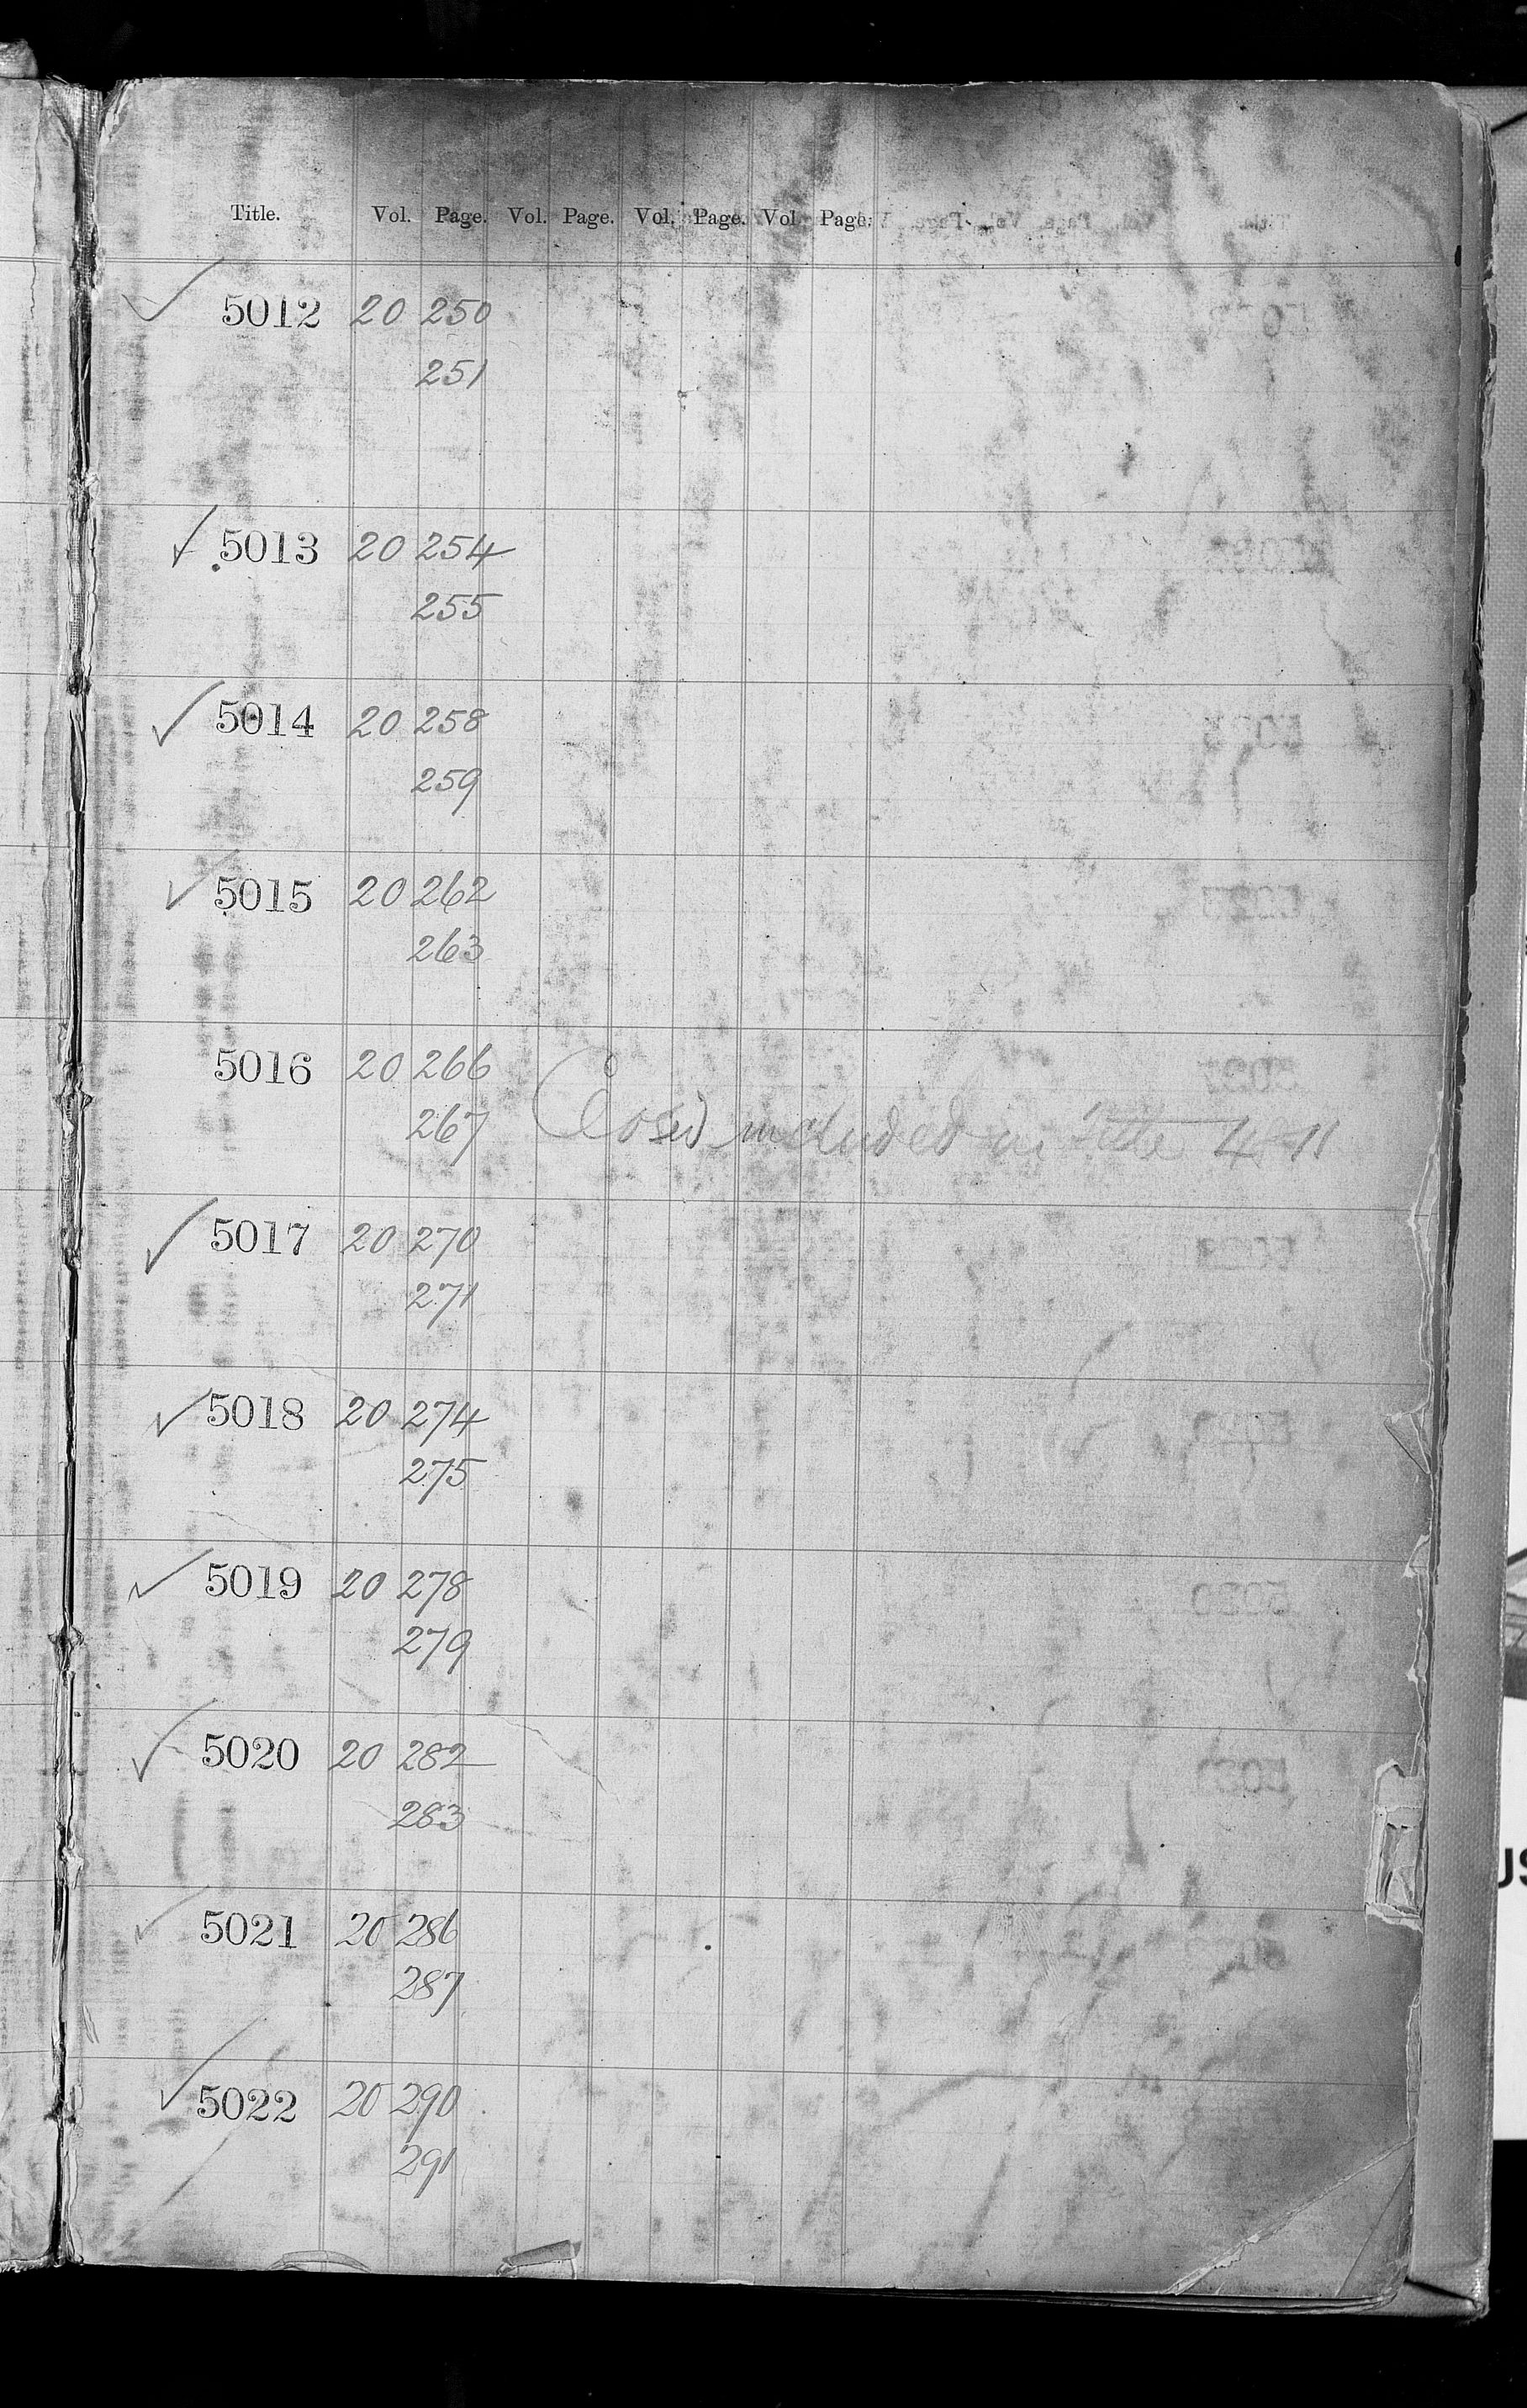 Title. Vol. Page. Vol. Page. Vol. Page. Vol. Page.
✓ 5012 20 250
251
✓ 5013 20 254
255
✓ 5014 20 258
259
✓ 5015 20 262
263
5016 20 266
267 Closed included in title
✓ 5017 20 270
271
✓ 5018 20 274
275
✓ 5019 20 278
279
✓ 5020 20 282
283
✓ 5021 20 286
287
✓ 5022 20 290
291